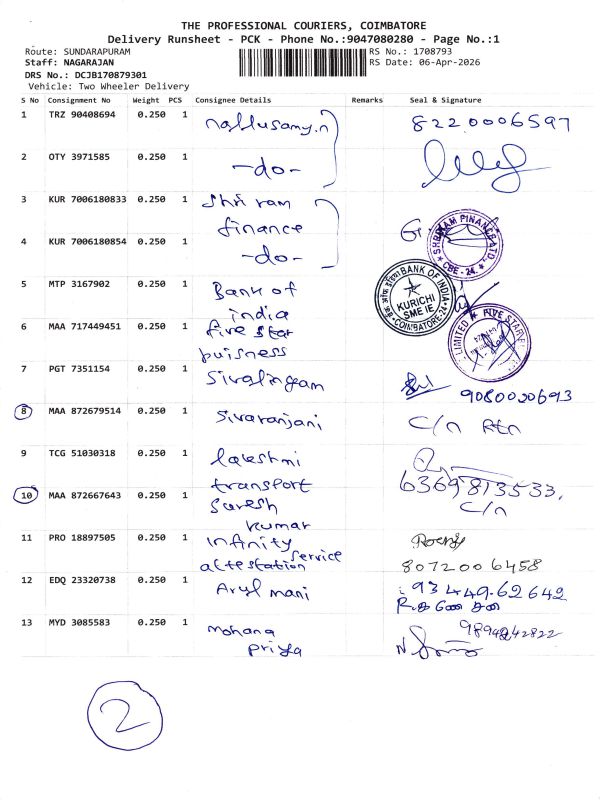 THE PROFESSIONAL COURIERS, COIMBATORE
Delivery Runsheet - PCK - Phone No.:9047080280 - Page No.:1
Route: SUNDARAPURAM
RS No.: 1708793
Staff: NAGARAJAN
RS Date: 06-Apr-2026
DRS No.: DCJB170879301
Vehicle: Two Wheeler Delivery
S No Consignment No Weight PCS Consignee Details Remarks Seal & Signature
1 TRZ 90408694 0.250 1 nallusamy.n 8220006597
2 OTY 3971585 0.250 1 -do-
3 KUR 7006180833 0.250 1 Shriram
finance
SHRIRAM FINANCE LTD
CBE - 24.
4 KUR 7006180854 0.250 1 -do-
5 MTP 3167902 0.250 1 Bank of
india
BANK OF INDIA
KURICHI
SME IE
COIMBATORE-24
6 MAA 717449451 0.250 1 five star
buisness
LIMITED FIVE STAR
7 PGT 7351154 0.250 1 Sivalingam
9080020693
8 MAA 872679514 0.250 1 Sivaranjani C/n Rtn
9 TCG 51030318 0.250 1 lakshmi
transport
6369813533.
10 MAA 872667643 0.250 1 Suresh
kumar
C/n
11 PRO 18897505 0.250 1 infinity
service
attestation
8072006458
12 EDQ 23320738 0.250 1 Arul mani 93449.62642
13 MYD 3085583 0.250 1 mohana
priya
9894242822
2